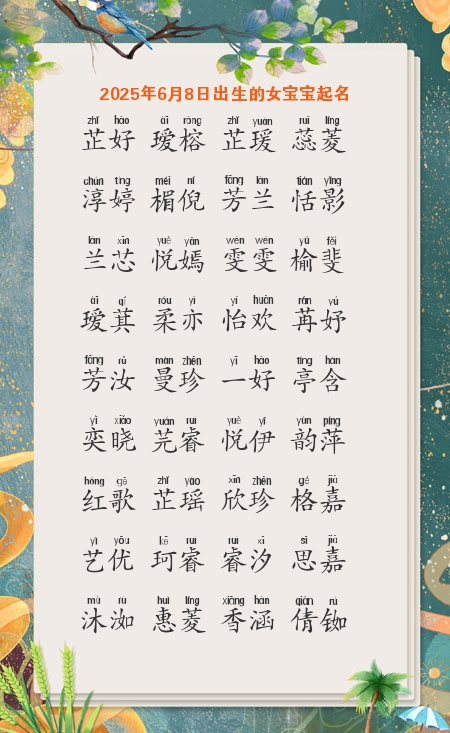 2025年6月8日出生的女宝宝起名
zhǐ hǎo ài róng zhǐ yuàn ruǐ líng
芷好 瑷榕 芷瑗 蕊菱
chún tíng méi ní fāng lán tián yǐng
淳婷 楣倪 芳兰 恬影
lán xīn yuè yān wén wén yú fěi
兰芯 悦嫣 雯雯 榆斐
ài qí róu yì yí huān rǎn yú
瑷萁 柔亦 怡欢 苒妤
fāng rǔ màn zhēn yī hǎo tíng hán
芳汝 曼珍 一好 亭含
yì xiǎo yuán ruì yuè yī yùn píng
奕晓 芫睿 悦伊 韵萍
hóng gē zhǐ yáo xīn zhēn gé jiā
红歌 芷瑶 欣珍 格嘉
yì yōu kē ruì ruì xī sī jiā
艺优 珂睿 睿汐 思嘉
mù rù huì líng xiāng hán qiàn rú
沐洳 惠菱 香涵 倩铷